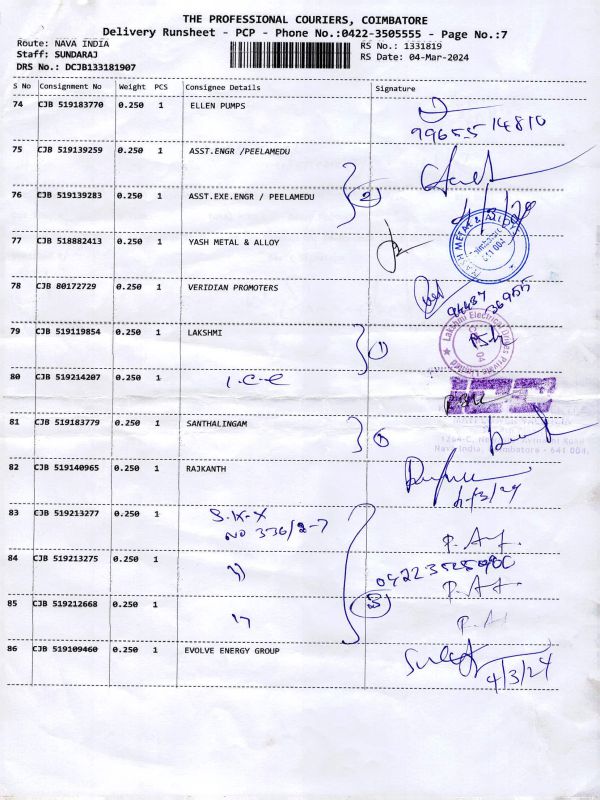 THE PROFESSIONAL COURIERS, COIMBATORE
Delivery Runsheet - PCP - Phone No.:0422-3505555 - Page No.:7
Route: NAVA INDIA
RS No.: 1331819
Staff: SUNDARAJ
RS Date: 04-Mar-2024
DRS No.: DCJB133181907
S No Consignment No Weight PCS Consignee Details Signature
74 CJB 519183770 0.250 1 ELLEN PUMPS
99655 14810
75 CJB 519139259 0.250 1 ASST.ENGR /PEELAMEDU
76 CJB 519139283 0.250 1 ASST.EXE.ENGR / PEELAMEDU
2
77 CJB 518882413 0.250 1 YASH METAL & ALLOY
YASH METAL & ALLOY
Coimbatore
641 004
78 CJB 80172729 0.250 1 VERIDIAN PROMOTERS
94437 36955
79 CJB 519119854 0.250 1 LAKSHMI
1
Lakshmi Electrical Drives Private Limited
80 CJB 519214207 0.250 1 I.C.C
81 CJB 519183779 0.250 1 SANTHALINGAM
Nava India, Coimbatore - 641 004.
82 CJB 519140965 0.250 1 RAJKANTH
4/3/24
83 CJB 519213277 0.250 1 S.IX-X
NO 336/2-7
84 CJB 519213275 0.250 1 "
85 CJB 519212668 0.250 1 "
86 CJB 519109460 0.250 1 EVOLVE ENERGY GROUP
4/3/24